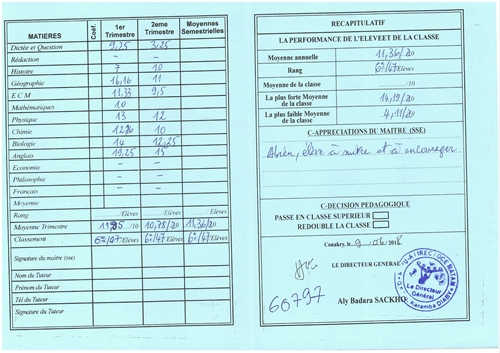 MATIERES Coéf. 1er Trimestre 2eme Trimestre Moyennes Semestrielles
Dictée et Question 9,25 3,25
Rédaction - -
Histoire 7 10
Géographie 16,16 11
E C M 11,33 9,5
Mathématiques 10
Physique 13 12
Chimie 10
Biologie 14 12,25
Anglais 19,25 15
Economie - -
Philosophie - -
Français - -
Moyenne
Rang /Elèves /Elèves /Elèves
Moyenne Trimestre /10 10,78/20 11,36/20
Classement /Elèves 6e/47Elèves 6e/47Elèves
Signature du maitre (sse)
Nom du Tuteur
Prénom du Tuteur
Tél du Tuteur
Signature du Tuteur
RECAPITULATIF
LA PERFORMANCE DE L'ELEVEET DE LA CLASSE
Moyenne annuelle 11,36/20
Rang 6e/47Elèves
Moyenne de la classe /10
La plus forte Moyenne de la classe 14,19/20
La plus faible Moyenne de la classe 4,11/20
C-APPRECIATIONS DU MAITRE (SSE)
élève à suivre et à encourager
C-DECISION PEDAGOGIQUE
PASSE EN CLASSE SUPERIEUR
REDOUBLE LA CLASSE
Conakry, le 9/06/2018
LE DIRECTEUR GENERAL
Le Directeur Général
Karamba DIABY
60797
Aly Badara SACKHO